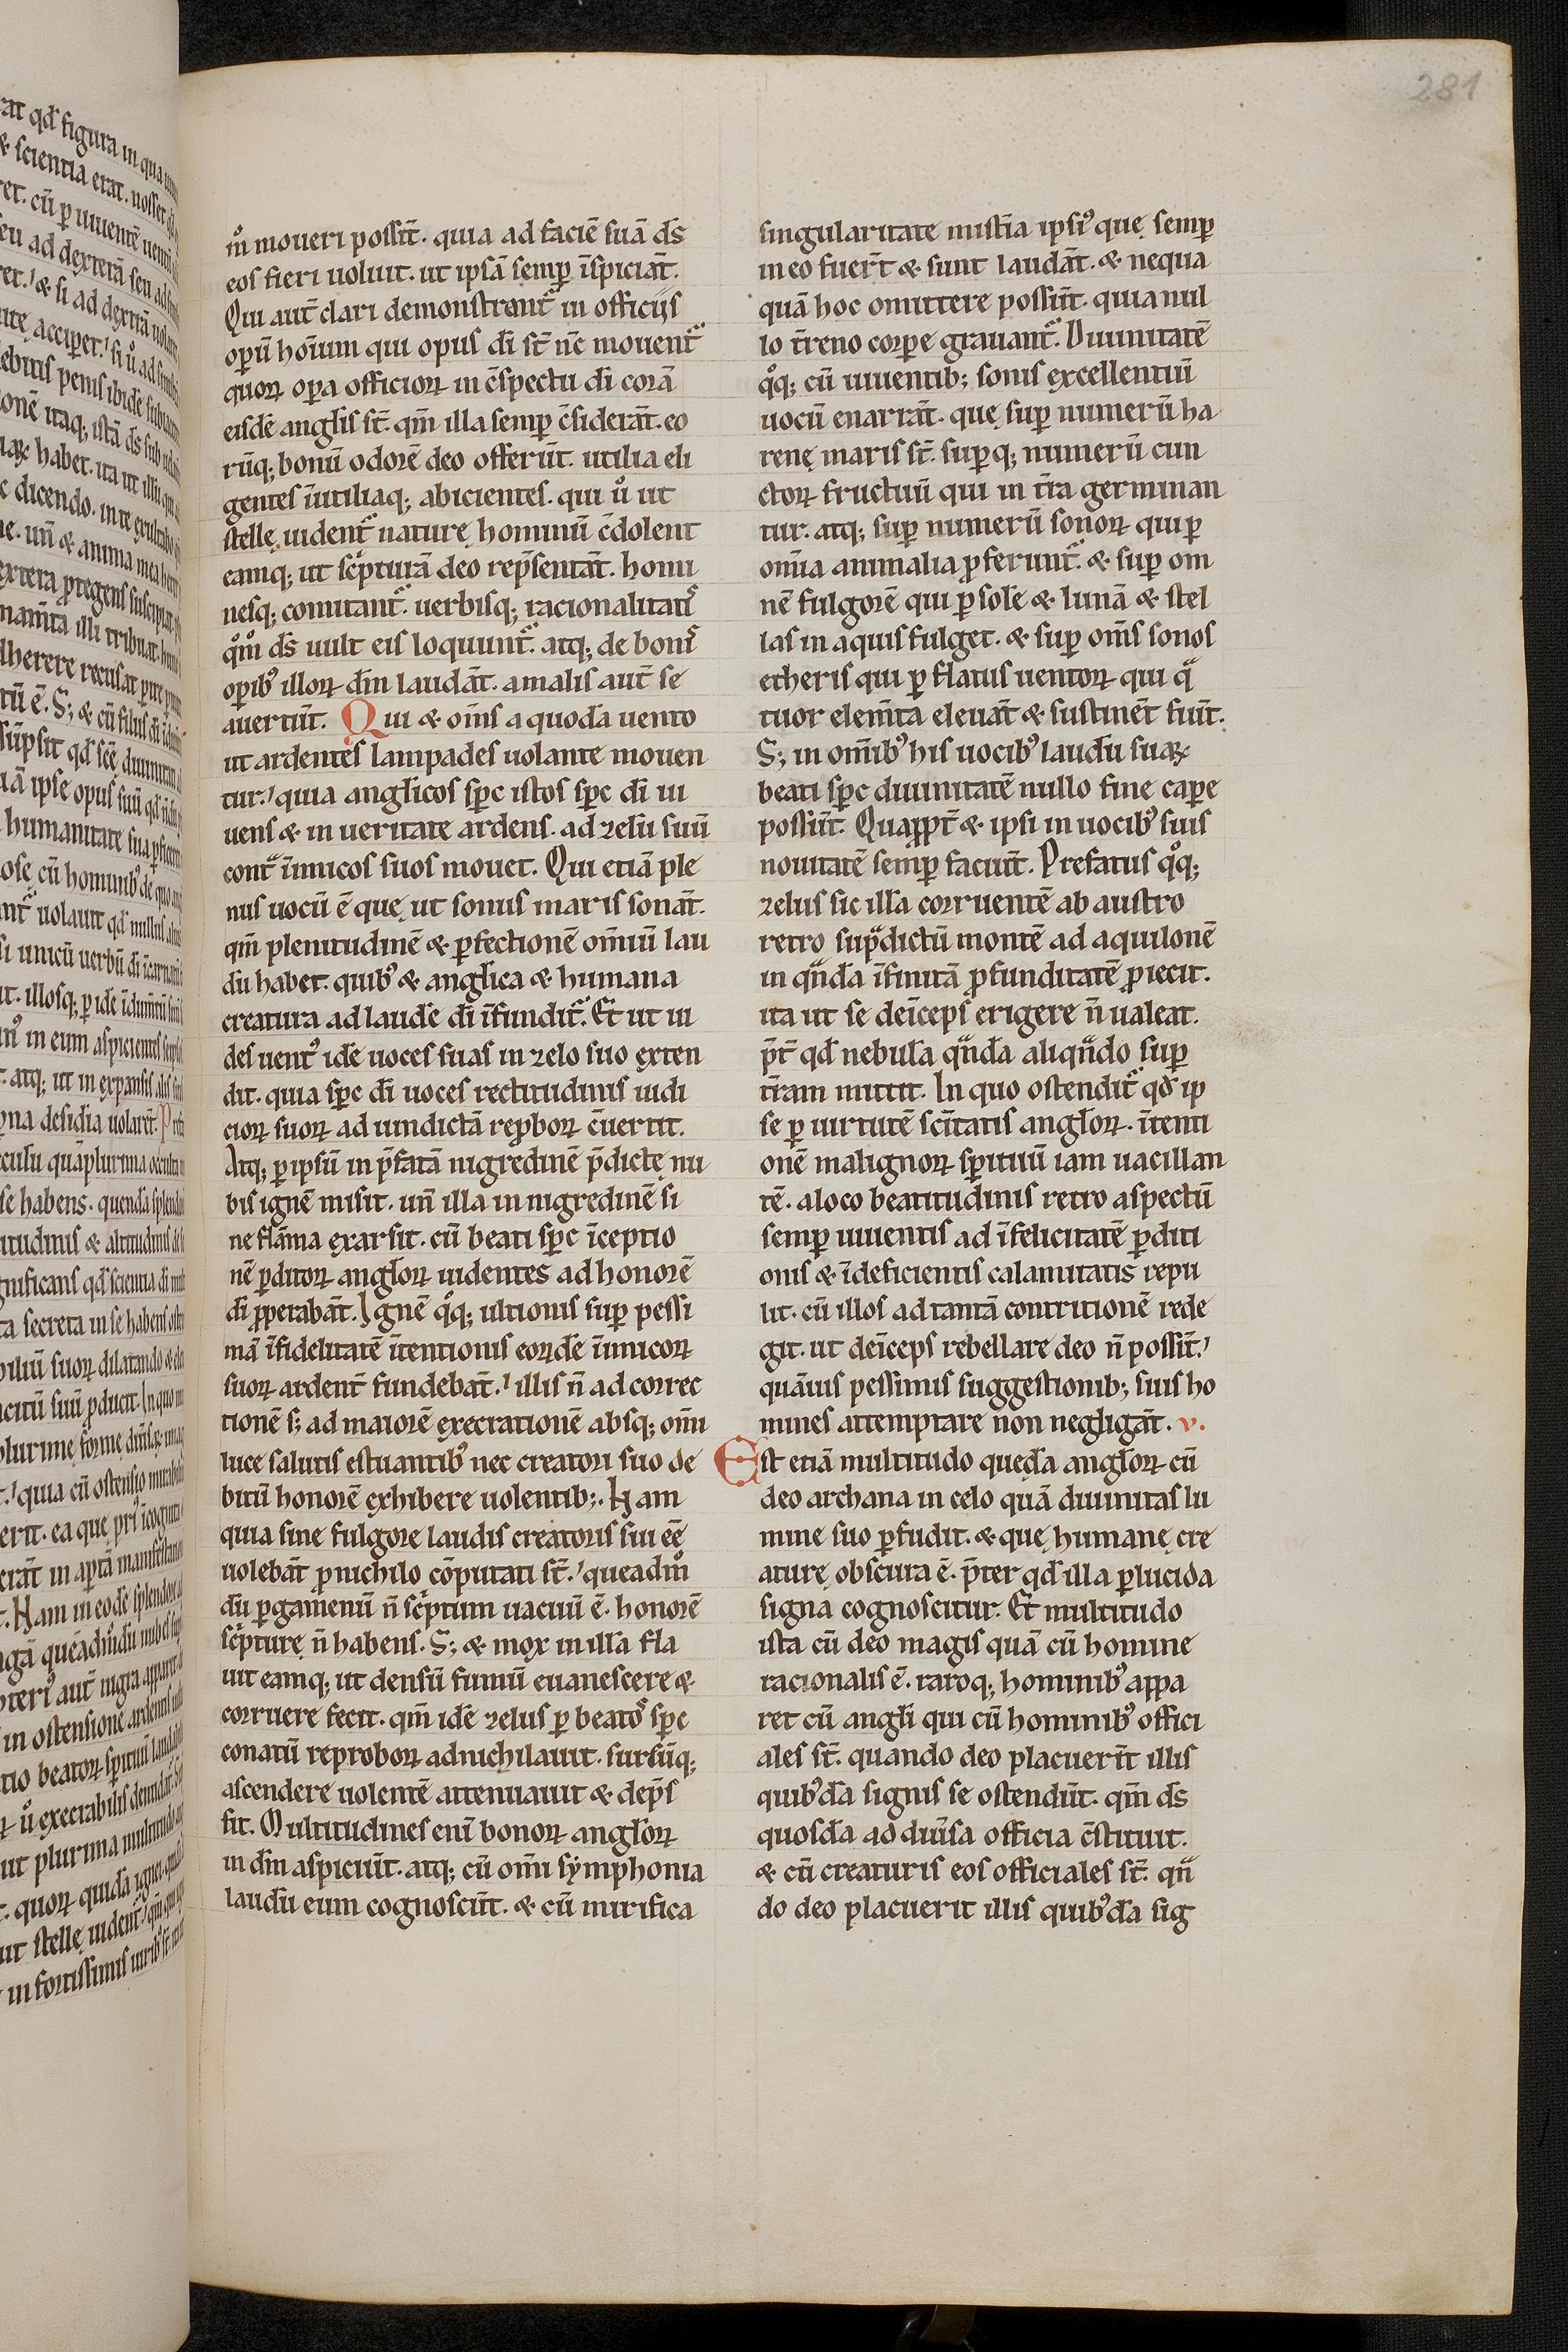 281
m̊ moueri possit̄. quia ad faciē suā ds̄
eos fieri uoluit. ut ipsā semꝑ īspiciāt.
Qui aut̄ clari demonstrant᷑ in officijs
opeꝝ̄ hoīum qui opus di̅ st̄ nc̄ mouent᷑
quoꝝ oꝑa officioꝝ in c̄spectu di̅ corā
eisdē angl̄is st̄. qm̄ illa semꝑ c̄siderāt. eo
rūq; bonū odorē deo offerūt. utilia eli
gentes īutiliaq; abicientes. qui u̾ ut
stellę uident᷑ naturę hominū c̄dolent
eamq; ut sc̾pturā deo rep̄sentāt. homi
nesq; comitant᷑. uerbisq; racionalitatis
qm̊ ds̄ uult eis loquunt᷑. atq; de bonis
opib᷒ illoꝝ dm̄ laudāt. a malis aut̄ se
auertūt. Qui & om̄s a quodā uento
ut ardentes lampades uolante mouen
tur.' quia angl̄icos sp̄c istos sp̄c di̅ ui
uens & in ueritate ardens. ad zelū suū
contᷓ īimicos suos mouet. Qui etiā ple
nus uocū ē quę ut sonus maris sonāt.
qm̄ plenitudinē & ꝑfectionē om̄iū lau
dū habet. quib᷒ & angl̄ica & humana
creatura ad laudē di̅ īfundit᷑. Et ut ui
des uent᷒ idē uoces suas in zelo suo exten
dit. quia sp̄c di̅ uoces rectitudinis iudi
cioꝝ suoꝝ ad uindictā reꝓboꝝ c̄uertit.
Atq; ꝑ ipsū in p̄fatā nigredinē p̄dictę nu
bis ignē misit. un̄ illa in nigredinē si
ne flāma exarsit. cū beati sp̄c īceptio
nē ꝑditoꝝ angl̄oꝝ uidentes ad honorē
di̅ ꝓperabāt. Ignē q̊q; ultionis suꝑ pessi
mā īfidelitatē ītentionis eoꝝdē īimicoꝝ
suoꝝ ardent̄ fundebāt.' illis n̄ ad correc
tionē s; ad maiorē execrationē absq; om̄i
luce salutis estuantib᷒ nec creatori suo de
bitū honorē exhibere uolentib;. Nam
quia sine fulgore laudis creatoris sui eē
uolebāt ꝓ nichilo cōputati st̄.' queadm̊
dū ꝑgamenū n̄ sc̾ptum uacuū ē. honorē
sc̾pturę n̄ habens. S; & mox in illā fla
uit eamq; ut densū fumū euanescere &
corruere fecit. qm̄ idē zelus ꝑ beatos sp̄c
conatū reproboꝝ adnichilauit. sursūq;
ascendere uolentē attenuauit & dep̄s
sit. Multitudines eni̅ bonoꝝ angl̄oꝝ
in dm̄ aspiciūt. atq; cū om̄i symphonia
laudū eum cognoscūt. & cū mirifica
singularitate mist̄ia ipsi᷒ quę semꝑ
in eo fuer̄t & sunt laudāt. & nequa
quā hoc omittere possūt. quia nul
lo t̄reno corꝑe grauant᷑. Diuinitatē
q̊q; cū uiuentib; sonis excellentiū
uocū enarrāt. quę suꝑ numerū ha
renę maris st̄. suꝑq; numerū cun
ctoꝝ fructuū qui in t̄ra germinan
tur. atq; suꝑ numerū sonoꝝ qui ꝑ
om̄ia animalia ꝓferunt᷑. & suꝑ om
nē fulgorē qui ꝑ solē & lunā & stel
las in aquis fulget. & suꝑ om̄s sonos
etheris qui ꝑ flatus uentoꝝ qui qᷓ
tuor elem̄ta eleuāt & sustinēt fiūt.
S; in om̄ib᷒ his uocib᷒ laudū suaꝝ
beati sp̄c diuinitatē nullo fine caꝑe
possūt. Quaꝓpt̄ & ipsi in uocib᷒ suis
nouitatē semꝑ faciūt. Prefatus q̊q;
zelus sic illā corruentē ab austro
retro supᷓdictū montē ad aquilonē
in qnᷓdā īfinitā ꝓfunditatē ꝓiecit.
ita ut se deīceps erigere n̄ ualeat.
p̄t̄ qd̄ nebulā qnᷓdā aliqnᷓdo suꝑ
t̄ram mittit. In quo ostendit᷑ qd̄ ip
se ꝑ uirtutē sc̄itatis angl̄oꝝ. ītenti
onē malignoꝝ sp̄irituū iam uacillan
tē. a loco beatitudinis retro aspectū
semꝑ uiuentis ad īfelicitatē ꝑditi
onis & īdeficientis calamitatis repu
lit. cū illos ad tantā contritionē rede
git. ut deīceps rebellare deo n̄ possīt.'
quāuis pessimis suggestionib; suis ho
mines attemptare non negligāt. v.
Est etiā multitudo quędā angl̄oꝝ cū
deo archana in celo quā diuinitas lu
mine suo ꝑfudit. & quę humanę cre
aturę obscura ē. p̄ter qd̄ illa ꝑlucida
signa cognoscitur. Et multitudo
ista cū deo magis quā cū homine
racionalis ē. raroq; hominib᷒ appa
ret cū angl̄i qui cū hominib᷒ offici
ales st̄. quando deo placuerit̄ illis
quib᷒dā signis se ostendūt. qm̄ ds̄
quosdā ad diūsa officia c̄stituit.
& cū creaturis eos officiales st̄. qnᷓ
do deo placuerit illis quib᷒dā sig